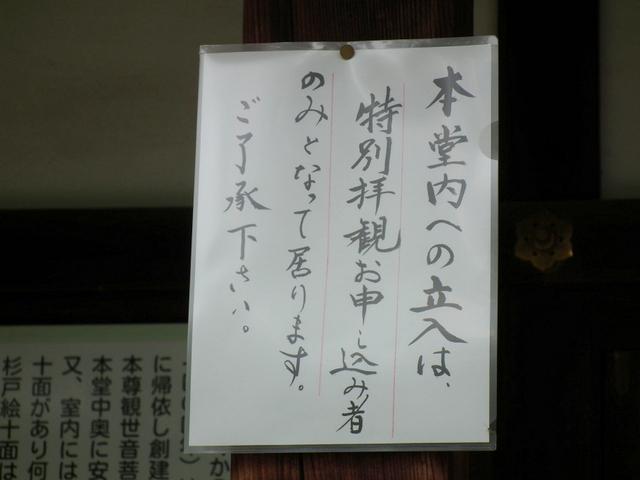 本堂内への立入は、
特別拝観お申し込み者
のみとなって居ります。
ご了承下さい。
に帰依し創建
本尊観世音菩
本堂中奥に安
又、室内には
十面があり何
杉戸絵十面は